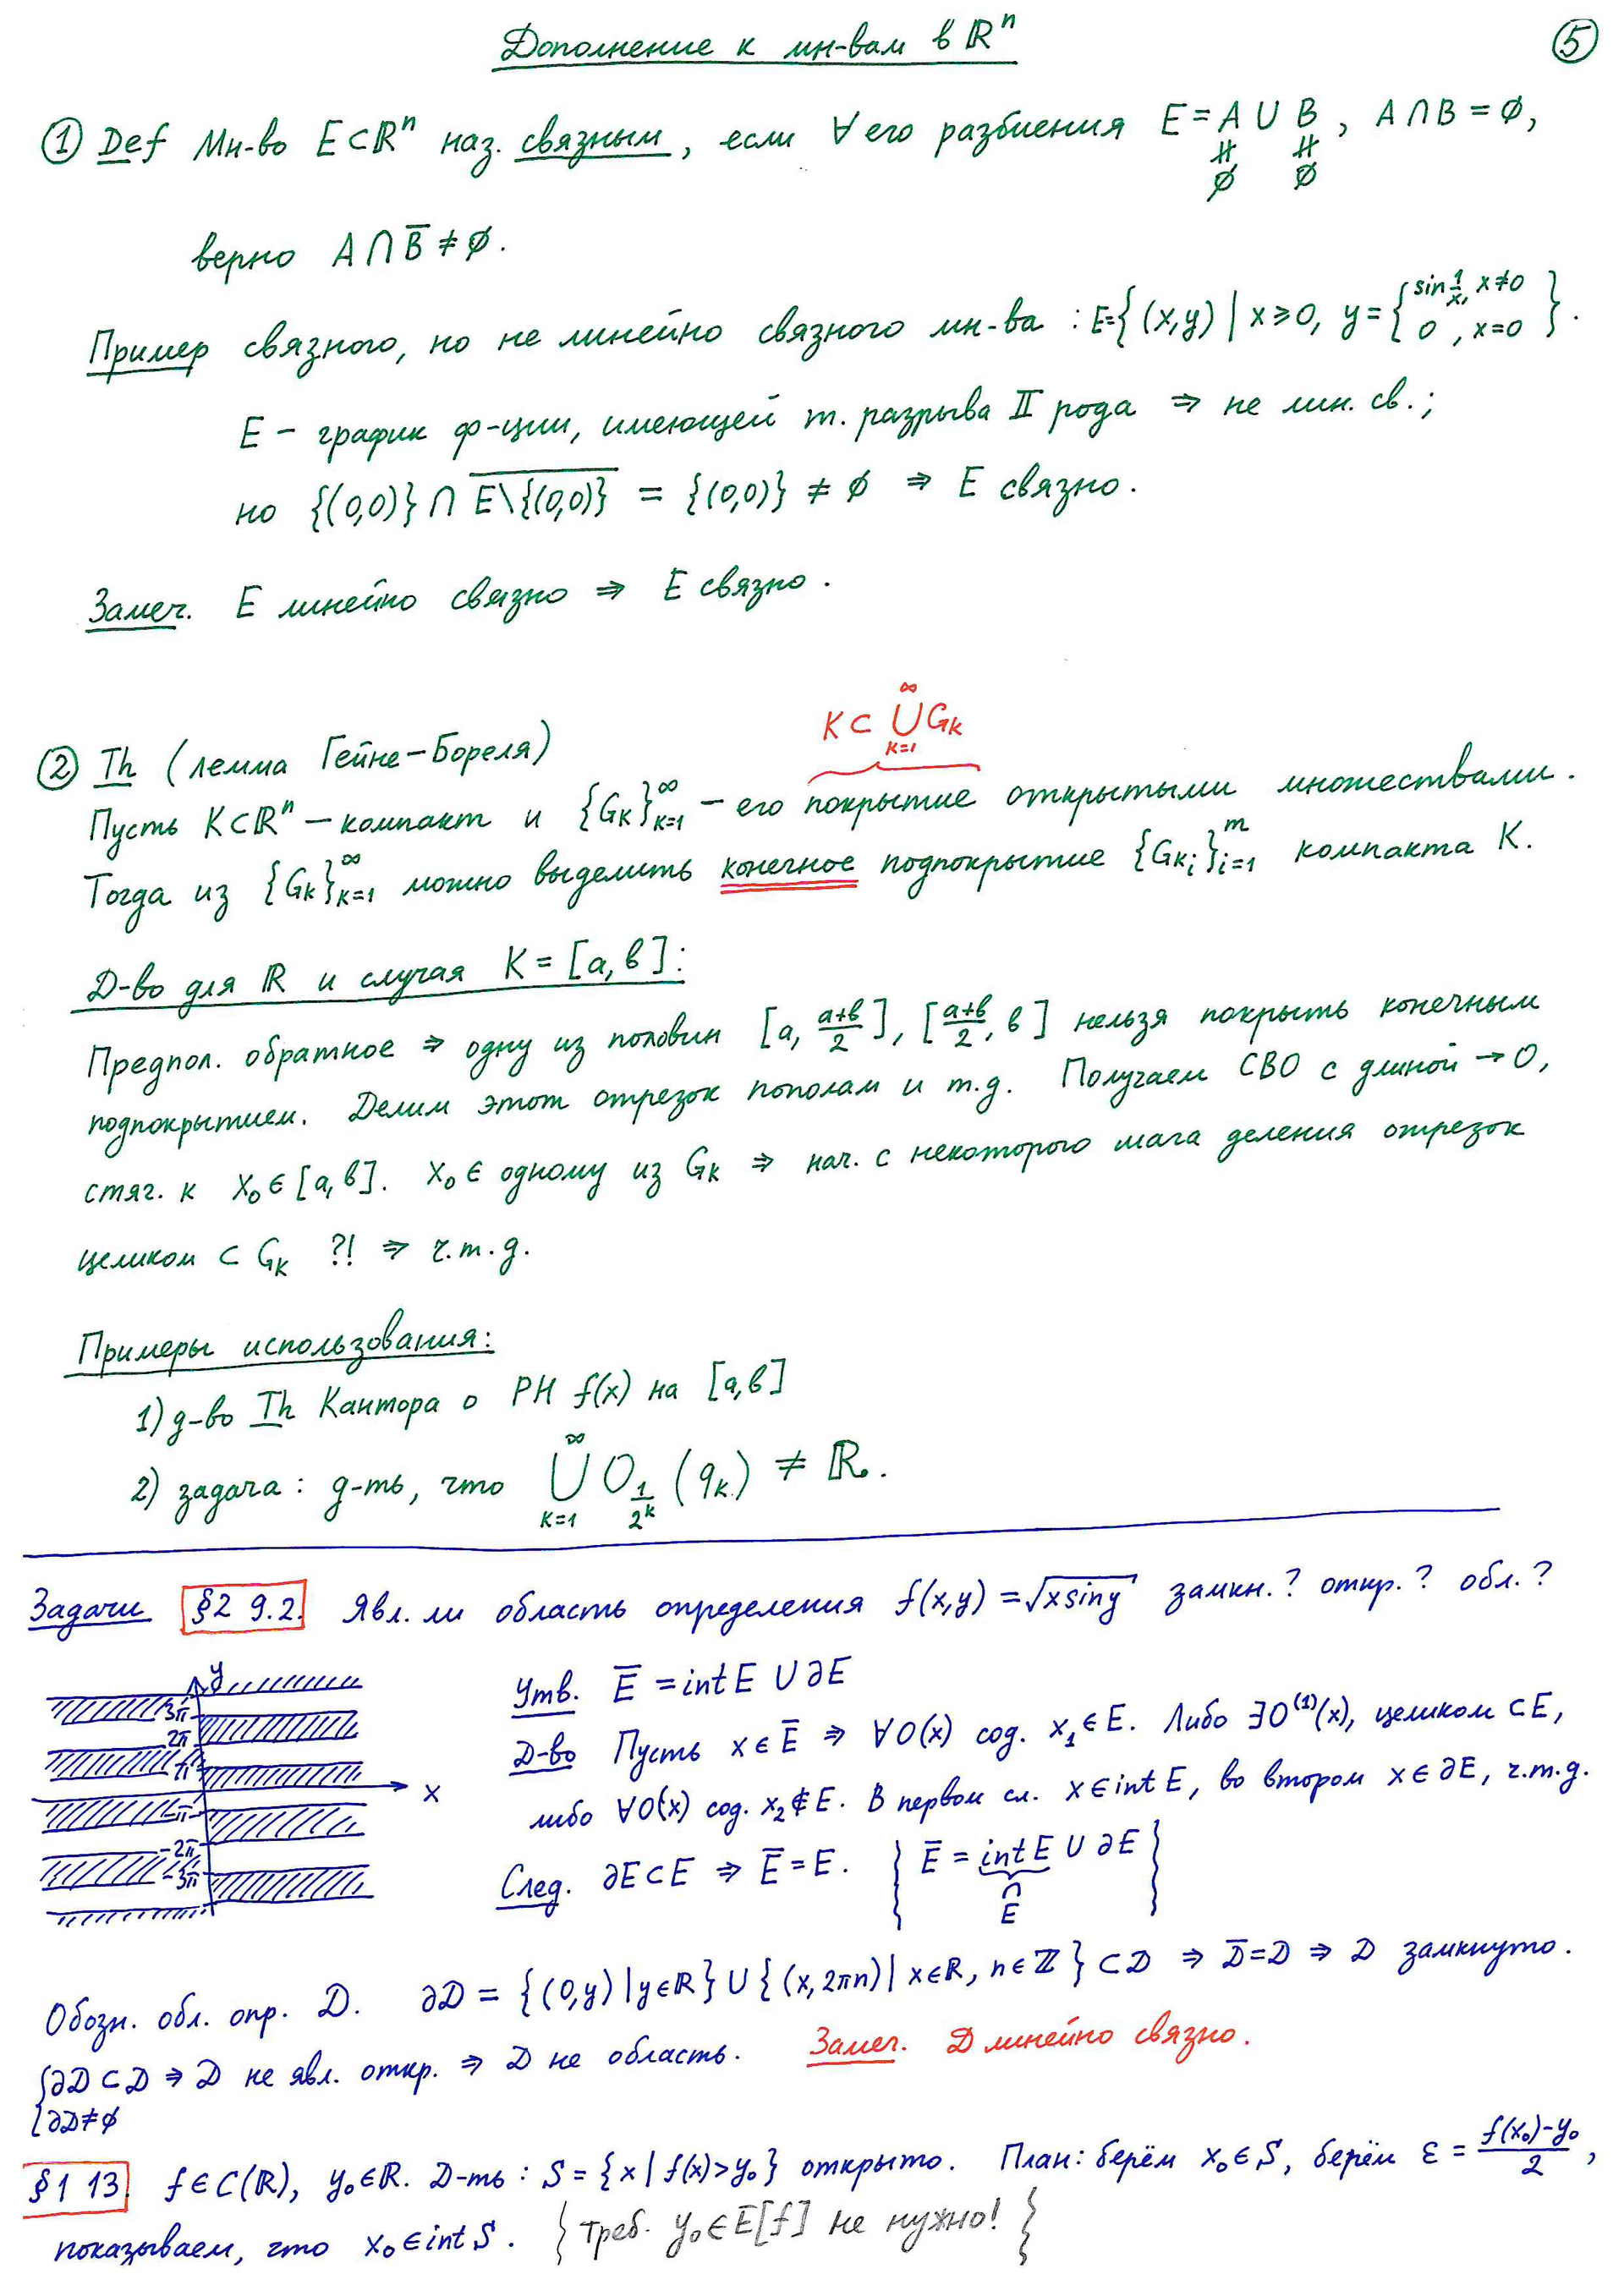 Дополнение к мн-вам в ℝⁿ
⑤
① Def Мн-во E⊂ℝⁿ наз. связным, если ∀ его разбиения E = A ∪ B, A∩B = ∅,
≠ ≠
∅ ∅
верно A∩B̅ ≠ ∅.
Пример связного, но не линейно связного мн-ва : E={(x,y) | x≥0, y={sin 1/x, x≠0
0, x=0}.
E – график ф-ции, имеющей т. разрыва II рода ⇒ не лин. св.;
но {(0,0)} ∩ \overline{E\{(0,0)}} = {(0,0)} ≠ ∅ ⇒ E связно.
Замеч. E линейно связно ⇒ E связно.
K ⊂ ⋃_{k=1}^∞ G_k
② Th (лемма Гейне-Бореля)
Пусть K⊂ℝⁿ – компакт и {G_k}_{k=1}^∞ – его покрытие открытыми множествами.
Тогда из {G_k}_{k=1}^∞ можно выделить конечное подпокрытие {G_{k_i}}_{i=1}^m компакта K.
Д-во для ℝ и случая K = [a, b]:
Предпол. обратное ⇒ одну из половин [a, (a+b)/2], [(a+b)/2, b] нельзя покрыть конечным
подпокрытием. Делим этот отрезок пополам и т.д. Получаем СВО с длиной → 0,
стяг. к x₀ ∈ [a, b]. x₀ ∈ одному из G_k ⇒ нач. с некоторого шага деления отрезок
целиком ⊂ G_k ?! ⇒ ч.т.д.
Примеры использования:
1) д-во Th Кантора о РН f(x) на [a,b]
2) задача : д-ть, что ⋃_{k=1}^∞ O_{1/2^k}(q_k) ≠ ℝ.
Задачи §2 9.2. Явл. ли область определения f(x,y) = √(x sin y) замкн.? откр.? обл.?
y
3π
2π
π
x
-π
-2π
-3π
Утв. E̅ = int E ∪ ∂E
Д-во Пусть x ∈ E̅ ⇒ ∀ O(x) сод. x₁ ∈ E. Либо ∃ O⁽¹⁾(x), целиком ⊂ E,
либо ∀O(x) сод. x₂ ∉ E. В первом сл. x ∈ int E, во втором x ∈ ∂E, ч.т.д.
След. ∂E ⊂ E ⇒ E̅ = E. { E̅ = int E ∪ ∂E }
∩
E
Обозн. обл. опр. D. ∂D = {(0,y) | y∈ℝ} ∪ {(x, 2πn) | x∈ℝ, n∈ℤ} ⊂ D ⇒ D̅ = D ⇒ D замкнуто.
{∂D ⊂ D ⇒ D не явл. откр. ⇒ D не область. Замеч. D линейно связно.
∂D ≠ ∅
§1 13. f ∈ C(ℝ), y₀∈ℝ. Д-ть : S = {x | f(x) > y₀} открыто. План: берём x₀ ∈ S, берём ε = (f(x₀)-y₀)/2,
показываем, что x₀ ∈ int S. { Треб. y₀ ∈ E[f] не нужно! }